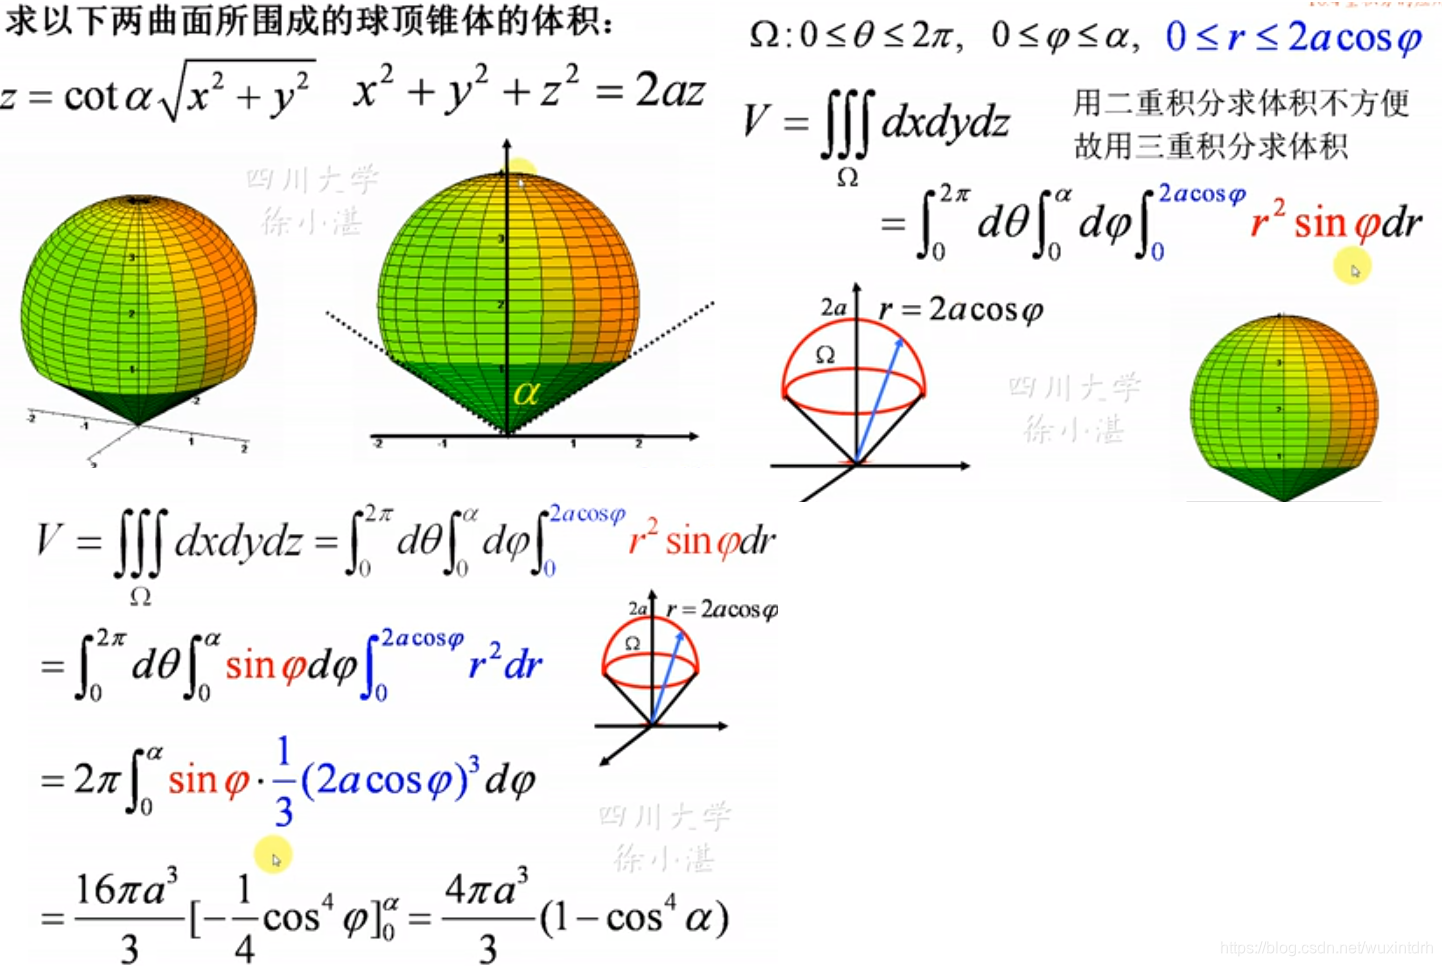 求以下两曲面所围成的球顶锥体的体积：
z = cot α √(x² + y²) x² + y² + z² = 2az
四川大学
徐小湛
3
2
1
-2
-1
1
2
4
3
2
1
α
-2
-1
1
2
Ω : 0 ≤ θ ≤ 2π, 0 ≤ φ ≤ α, 0 ≤ r ≤ 2a cos φ
V = ∭_Ω dxdydz
用二重积分求体积不方便
故用三重积分求体积
= ∫₀^{2π} dθ ∫₀^α dφ ∫₀^{2a cos φ} r² sin φ dr
2a r = 2a cos φ
Ω
四川大学
徐小湛
3
2
1
V = ∭_Ω dxdydz = ∫₀^{2π} dθ ∫₀^α dφ ∫₀^{2a cos φ} r² sin φ dr
2a r = 2a cos φ
Ω
= ∫₀^{2π} dθ ∫₀^α sin φ dφ ∫₀^{2a cos φ} r² dr
= 2π ∫₀^α sin φ · 1/3 (2a cos φ)³ dφ
四川大学
徐小湛
= 16πa³/3 [−1/4 cos⁴ φ]₀^α = 4πa³/3 (1 − cos⁴ α)
https://blog.csdn.net/wuxintdrh